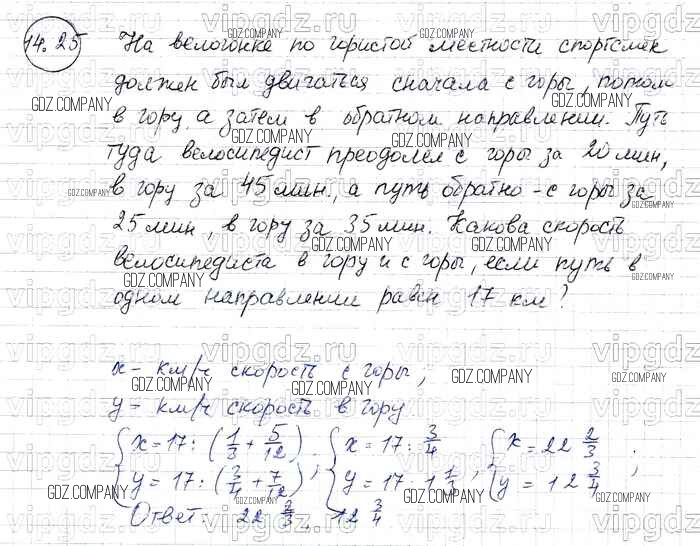 14.25 На велогонке по гористой местности спортсмен
должен был двигаться сначала с горы, потом
в гору, а затем в обратном направлении. Путь
туда велосипедист преодолел с горы за 20 мин,
в гору за 45 мин., а путь обратно - с горы за
25 мин, в гору за 35 мин. Какова скорость
велосипедиста в гору и с горы, если путь в
одном направлении равен 17 км?
x - км/ч скорость с горы;
y = км/ч скорость в гору
{ x = 17 : (1/3 + 5/12) { x = 17 : 3/4 { x = 22 2/3
{ y = 17 : (3/4 + 7/12) ; { y = 17 · 1 1/3 ; { y = 12 3/4 ;
Ответ: 22 2/3, 12 3/4
vipgdz.ru
GDZ.COMPANY